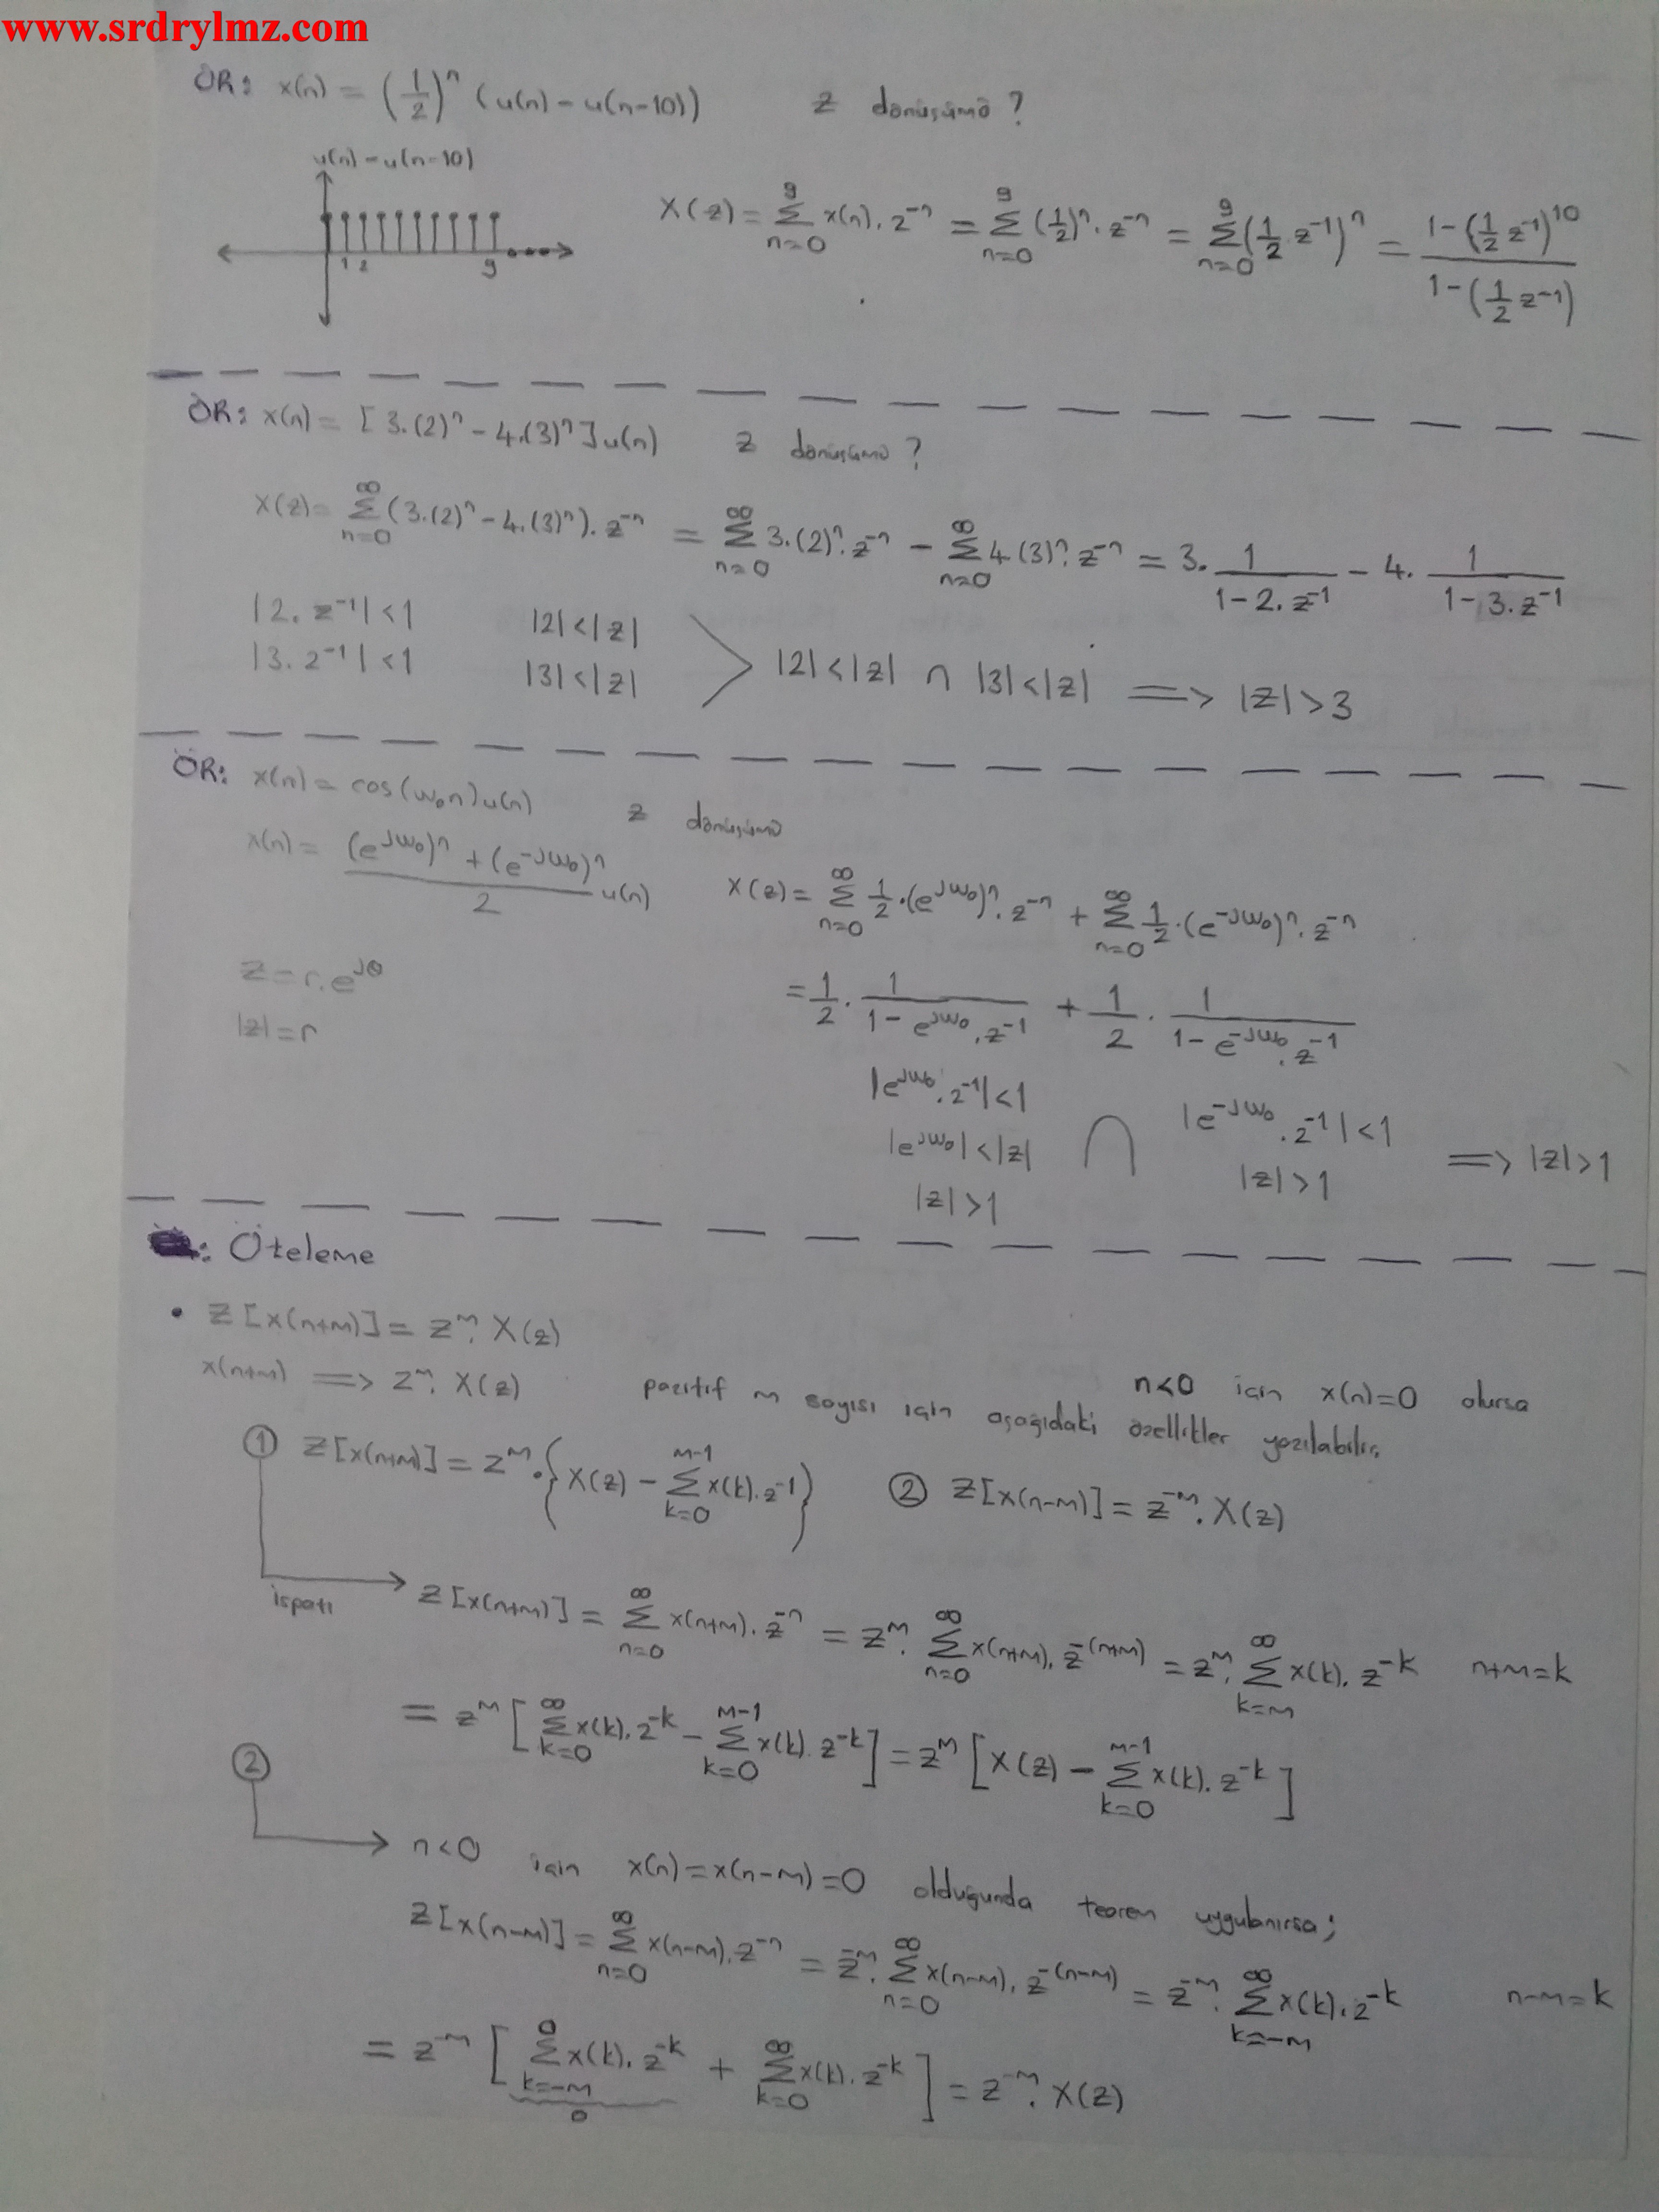 www.srdrylmz.com
ÖR: x(n) = (1/2)^n (u(n) - u(n-10))   z dönüşümü ?
u(n) - u(n-10)
1 2 9
X(z) = Σ_{n=0}^{9} x(n).z^-n = Σ_{n=0}^{9} (1/2)^n.z^-n = Σ_{n=0}^{9} (1/2 z^-1)^n = (1-(1/2 z^-1)^10)/(1-(1/2 z^-1))
ÖR: x(n) = [3.(2)^n - 4.(3)^n]u(n)   z dönüşümü ?
X(z) = Σ_{n=0}^{∞} (3.(2)^n - 4.(3)^n).z^-n = Σ_{n=0}^{∞} 3.(2)^n.z^-n - Σ_{n=0}^{∞} 4(3)^n.z^-n = 3.1/(1-2.z^-1) - 4.1/(1-3.z^-1)
|2.z^-1|<1   |2|<|z|
|3.z^-1|<1   |3|<|z|
|2|<|z| ∩ |3|<|z| => |z|>3
ÖR: x(n) = cos(w₀n)u(n)   z dönüşümü
x(n) = ((e^jw₀)^n + (e^-jw₀)^n)/2 u(n)   X(z) = Σ_{n=0}^{∞} 1/2.(e^jw₀)^n.z^-n + Σ_{n=0}^{∞} 1/2.(e^-jw₀)^n.z^-n
z = r.e^jθ   = 1/2 . 1/(1-e^jw₀.z^-1) + 1/2 . 1/(1-e^-jw₀.z^-1)
|z| = r
|e^jw₀.z^-1|<1   |e^-jw₀.z^-1|<1
|e^jw₀|<|z|   ∩   |z|>1   => |z|>1
|z|>1
: Öteleme
• Z[x(n+m)] = z^m.X(z)
x(n+m) => z^m.X(z)   n<0 için x(n)=0 olursa
pozitif m sayısı için aşağıdaki özellikler yazılabilir.
① Z[x(n+m)] = z^m.{X(z) - Σ_{k=0}^{m-1} x(k).z^-1}   ② Z[x(n-m)] = z^-m.X(z)
ispatı   Z[x(n+m)] = Σ_{n=0}^{∞} x(n+m).z^-n = z^m.Σ_{n=0}^{∞} x(n+m).z^-(n+m) = z^m.Σ_{k=m}^{∞} x(k).z^-k   n+m=k
= z^m[Σ_{k=0}^{∞} x(k).z^-k - Σ_{k=0}^{m-1} x(k).z^-k] = z^m[X(z) - Σ_{k=0}^{m-1} x(k).z^-k]
②
n<0 için x(n)=x(n-m)=0 olduğunda teorem uygulanırsa;
Z[x(n-m)] = Σ_{n=0}^{∞} x(n-m).z^-n = z^-m.Σ_{n=0}^{∞} x(n-m).z^-(n-m) = z^-m.Σ_{k=-m}^{∞} x(k).z^-k   n-m=k
= z^-m[Σ_{k=-m}^{0} x(k).z^-k + Σ_{k=0}^{∞} x(k).z^-k] = z^-m.X(z)
0